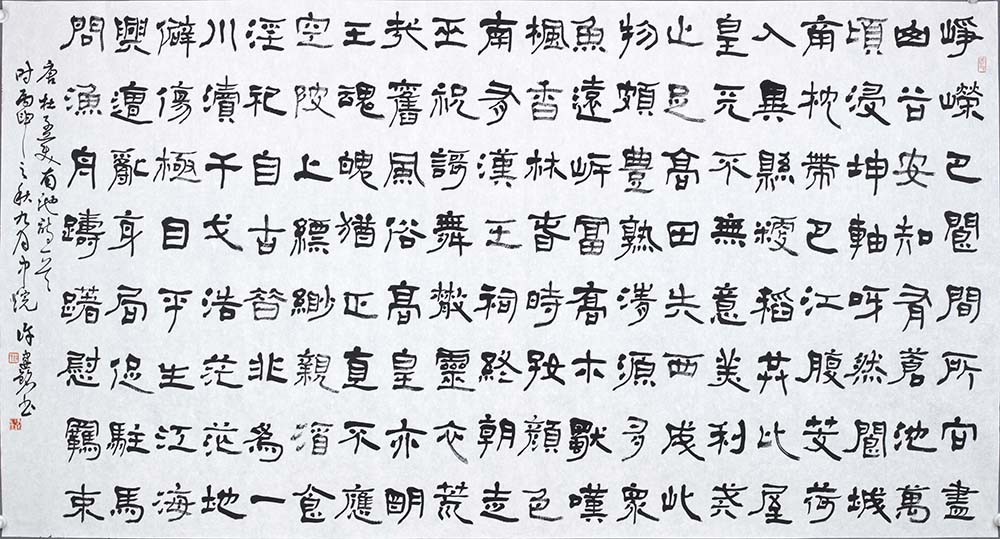 崢嶸巴閬間所向盡
幽谷安知有蒼池萬
頃浸坤軸呀然閬城
南枕帶巴江腹芰荷
入異縣稉稻共比屋
皇天不無意美利戒
止足高田失西成此
物頗豐熟清源多衆
魚遠岸富喬木獨嘆
楓香林春時好顏色
南有漢王祠終朝走
巫祝謌舞散靈衣荒
哉舊風俗高皇亦明
王魂魄猶正直不應
空陂上縹緲親酒食
淫祀自古昔非爲一
川瀆干戈浩茫茫地
僻傷極目平生江海
興遭亂身局促駐馬
問漁舟躊躇慰羈束
唐杜子美南池詩一首
时丙申之秋九月中浣 許書